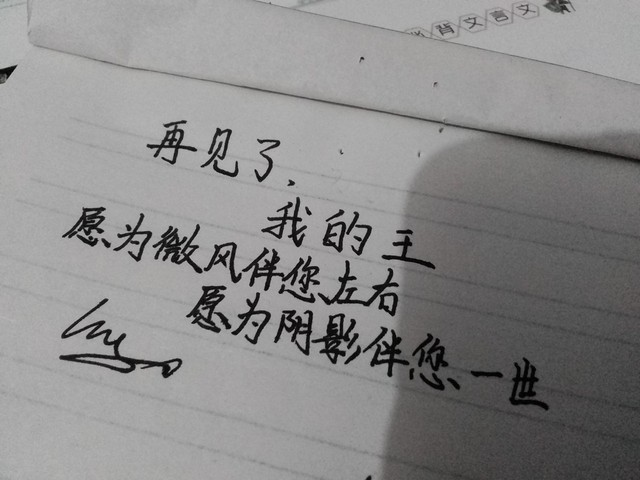 背文言文
再见了,
我的王
愿为微风伴您左右
愿为阴影伴您一世